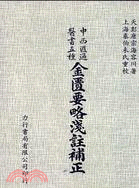 天彭唐宗海容川著
上海秦伯未氏重校
中西匯通
醫書五種
金匱要略淺註補正
力行書局有限公司印行